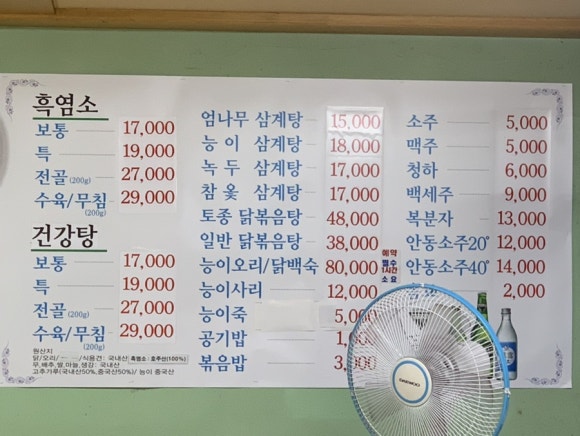 흑염소
보통 17,000
특 19,000
전골(200g) 27,000
수육/무침(200g) 29,000
건강탕
보통 17,000
특 19,000
전골(200g) 27,000
수육/무침(200g) 29,000
원산지
닭/오리/ /식용견 : 국내산 흑염소 : 호주산(100%)
무,배추,쌀,마늘,생강: 국내산
고추가루(국내산50%,중국산50%)/ 능이 중국산
엄나무 삼계탕 15,000
능이 삼계탕 18,000
녹두 삼계탕 17,000
참옻 삼계탕 17,000
토종 닭볶음탕 48,000
일반 닭볶음탕 38,000
능이오리/닭백숙 80,000
예약
필수
1시간
소요
능이사리 12,000
능이죽 5,000
공기밥
볶음밥
소주 5,000
맥주 5,000
청하 6,000
백세주 9,000
복분자 13,000
안동소주20° 12,000
안동소주40° 14,000
2,000
DAEWOO